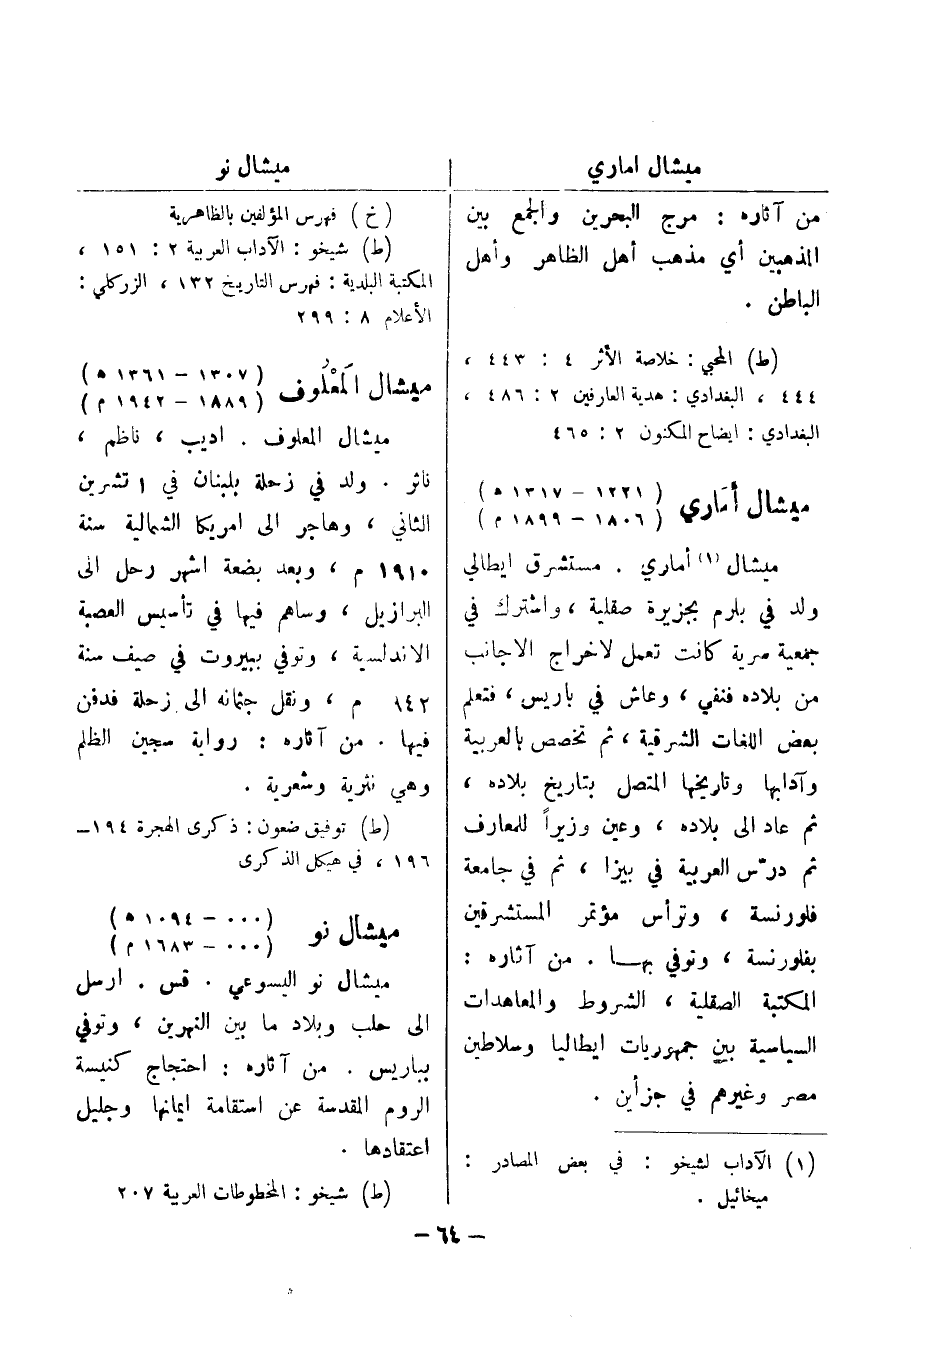 ميشال اماري
ميشال نو
من آثاره : مرج البحرين والجمع بين
المذهبين أي مذهب أهل الظاهر وأهل
الباطن .
(ط) المحبي : خلاصة الأثر ٤ : ٤٤٣ ،
٤٤٤ ، البغدادي : هدية العارفين ٢ : ٤٨٦ ،
البغدادي : ايضاح المكنون ٢ : ٤٦٥
ميشال أماري
(١٢٢١ – ١٣١٧ ه)
(١٨٠٦ – ١٨٩٩ م)
ميشال (١) أماري . مستشرق ايطالي
ولد في بلرم بجزيرة صقلية ، واشترك في
جمعية سرية كانت تعمل لاخراج الاجانب
من بلاده فنفي ، وعاش في باريس ، فتعلم
بعض اللغات الشرقية ، ثم تخصص بالعربية
وآدابها وتاريخها المتصل بتاريخ بلاده ،
ثم عاد الى بلاده ، وعين وزيراً للمعارف
ثم درّس العربية في بيزا ، ثم في جامعة
فلورنسة ، وترأس مؤتمر المستشرقين
بفلورنسة ، وتوفي بهـا . من آثاره :
المكتبة الصقلية ، الشروط والمعاهدات
السياسية بين جمهوريات ايطاليا وسلاطين
مصر وغيرهم في جزأين .
(١) الآداب لشيخو : في بعض المصادر :
ميخائيل .
(خ) فهرس المؤلفين بالظاهرية
(ط) شيخو : الآداب العربية ٢ : ١٥١ ،
المكتبة البلدية : فهرس التاريخ ١٣٢ ، الزركلي :
الأعلام ٨ : ٢٩٩
ميشال المَعْلُوف
(١٣٠٧ – ١٣٦١ ه)
(١٨٨٩ – ١٩٤٢ م)
ميشال المعلوف . اديب ، ناظم ،
ناثر . ولد في زحلة بلبنان في ١ تشرين
الثاني ، وهاجر الى امريكا الشمالية سنة
١٩١٠ م ، وبعد بضعة اشهر رحل الى
البرازيل ، وساهم فيها في تأسيس العصبة
الاندلسية ، وتوفي ببيروت في صيف سنة
١٤٢ م ، ونقل جثمانه الى زحلة فدفن
فيها . من آثاره : رواية سجين الظلم
وهي نثرية وشعرية .
(ط) توفيق ضعون : ذكرى الهجرة ١٩٤ –
١٩٦ ، في هيكل الذكرى
ميشال نو
(٠٠٠ – ١٠٩٤ ه)
(٠٠٠ – ١٦٨٣ م)
ميشال نو اليسوعي . قس . ارسل
الى حلب وبلاد ما بين النهرين ، وتوفي
بباريس . من آثاره : احتجاج كنيسة
الروم المقدسة عن استقامة ايمانها وجليل
اعتقادها .
(ط) شيخو : المخطوطات العربية ٢٠٧
– ٦٤ –